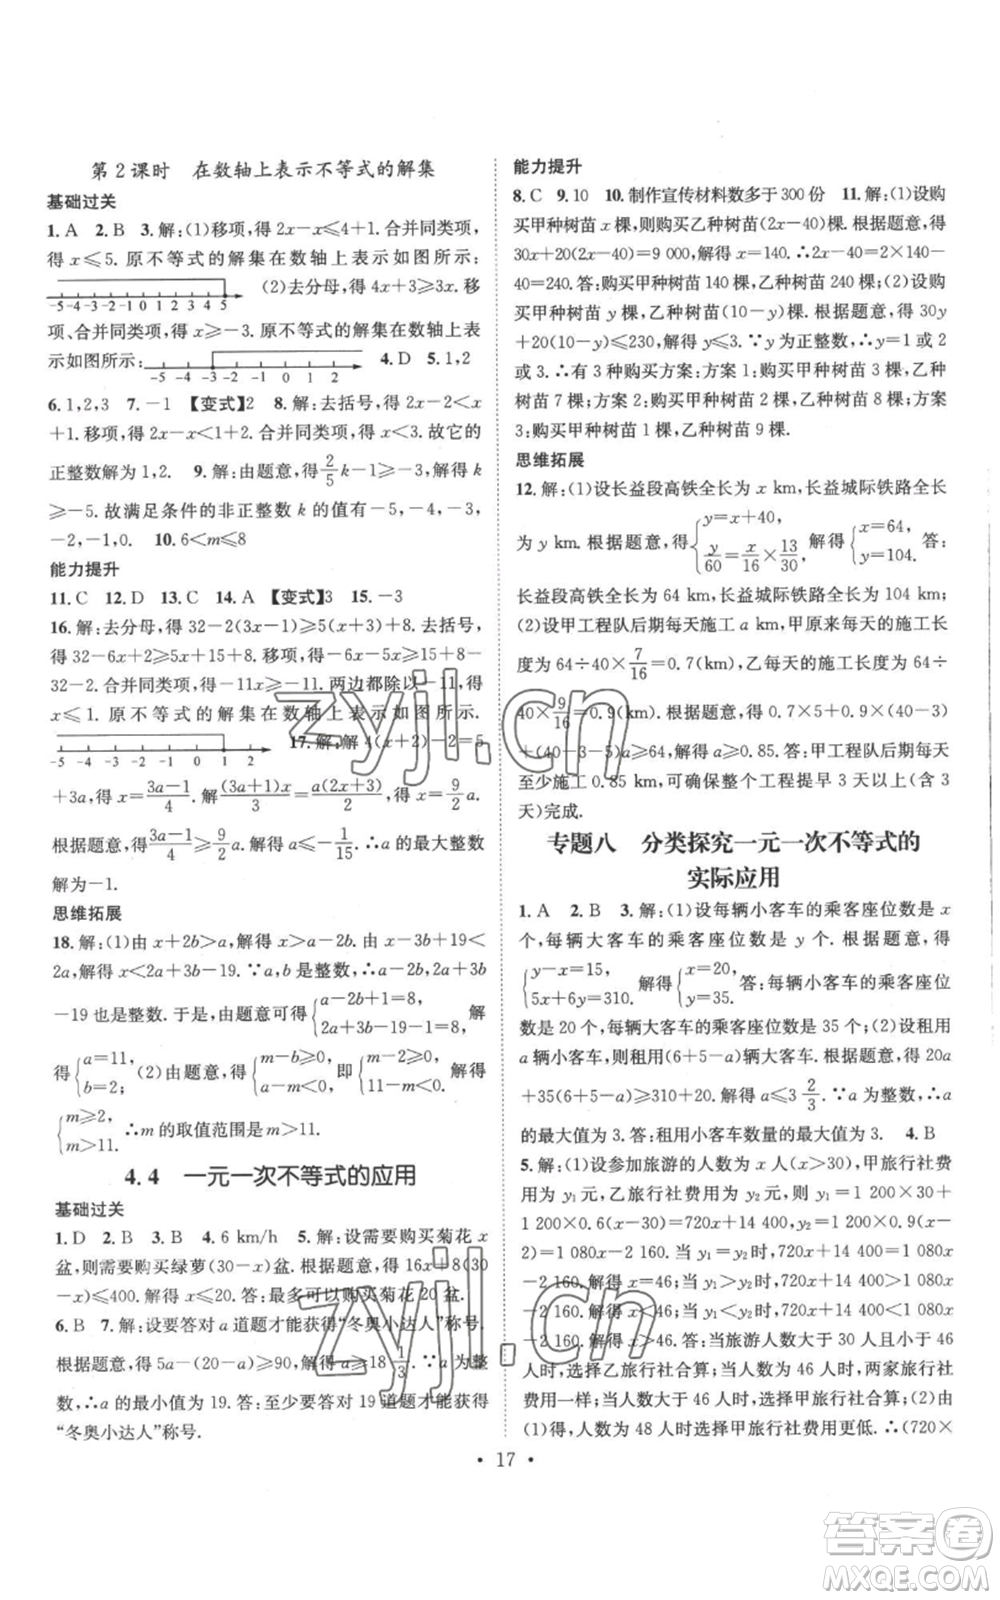 第2课时　在数轴上表示不等式的解集
基础过关
1. A　2. B　3. 解:(1)移项,得 2x−x⩽4+1. 合并同类项,
得 x⩽5. 原不等式的解集在数轴上表示如图所示:
-5 -4 -3 -2 -1 0 1 2 3 4 5　(2)去分母,得 4x+3⩾3x. 移
项、合并同类项,得 x⩾−3. 原不等式的解集在数轴上表
示如图所示: -5 -4 -3 -2 -1 0 1 2　4. D　5. 1,2
6. 1,2,3　7. −1　【变式】2　8. 解:去括号,得 2x−2<x
+1. 移项,得 2x−x<1+2. 合并同类项,得 x<3. 故它的
正整数解为 1,2.　9. 解:由题意,得 2/5 k−1⩾−3, 解得 k
⩾−5. 故满足条件的非正整数 k 的值有−5,−4,−3,
−2,−1,0.　10. 6<m⩽8
能力提升
11. C　12. D　13. C　14. A　【变式】3　15. −3
16. 解:去分母,得 32−2(3x−1)⩾5(x+3)+8. 去括号,
得 32−6x+2⩾5x+15+8. 移项,得−6x−5x⩾15+8−
32−2. 合并同类项,得−11x⩾−11. 两边都除以−11,得
x⩽1. 原不等式的解集在数轴上表示如图所示.
-5 -4 -3 -2 -1 0 1 2　17. 解:解 4(x+2)−2=5
+3a,得 x=(3a−1)/4. 解(3a+1)x/3=a(2x+3)/2,得 x=9/2 a.
根据题意,得(3a−1)/4⩾9/2 a. 解得 a⩽−1/15. ∴a 的最大整数
解为−1.
思维拓展
18. 解:(1)由 x+2b>a,解得 x>a−2b. 由 x−3b+19<
2a,解得 x<2a+3b−19. ∵a,b 是整数,∴a−2b,2a+3b
−19 也是整数. 于是得{a−2b+1=8, 2a+3b−19−1=8, 解
得{a=11, b=2; (2)由题意,得{m−b⩾0, a−m<0, 即{m−2⩾0, 11−m<0. 解得
{m⩾2, m>11. ∴m 的取值范围是 m>11.
4.4　一元一次不等式的应用
基础过关
1. D　2. B　3. B　4. 6 km/h　5. 解:设需要购买菊花 x
盆,则需要购买绿萝(30−x)盆. 根据题意,得 16x+8(30
−x)⩽400. 解得 x⩽20. 答:最多可以购买菊花 20 盆.
6. B　7. 解:设要答对 a 道题才能获得“冬奥小达人”称号.
根据题意,得 5a−(20−a)⩾90,解得 a⩾18 1/3. ∵a 为整
数,∴a 的最小值为 19. 答:至少要答对 19 道题才能获得
“冬奥小达人”称号.
能力提升
8. C　9. 10　10. 制作宣传材料数多于 300 份　11. 解:(1)设购
买甲种树苗 x 棵,则购买乙种树苗(2x−40)棵. 根据题意,得
30x+20(2x−40)=9 000,解得 x=140. ∴2x−40=2×140−
40=240. 答:购买甲种树苗 140 棵,乙种树苗 240 棵;(2)设购
买甲种树苗 y 棵,则购买乙种树苗(10−y)棵. 根据题意,得 30y
+20(10−y)⩽230,解得 y⩽3. ∵y 为正整数,∴y=1 或 2 或
3. ∴有 3 种购买方案:方案 1:购买甲种树苗 3 棵,乙
种树苗 7 棵;方案 2:购买甲种树苗 2 棵,乙种树苗 8 棵;方案
3:购买甲种树苗 1 棵,乙种树苗 9 棵.
思维拓展
12. 解:(1)设长益段高铁全长为 x km,长益城际铁路全长
为 y km. 根据题意,得{y=x+40, y/60=x/16×13/30, 解得{x=64, y=104. 答:
长益段高铁全长为 64 km,长益城际铁路全长为 104 km;
(2)设甲工程队后期每天施工 a km,甲原来每天的施工长
度为 64÷40×7/16=0.7(km),乙每天的施工长度为 64÷
40×9/16=0.9(km). 根据题意,得 0.7×5+0.9×(40−3)
+(40−3−5)a⩾64,解得 a⩾0.85. 答:甲工程队后期每天
至少施工 0.85 km,可确保整个工程提早 3 天以上(含 3
天)完成.
专题八　分类探究一元一次不等式的
实际应用
1. A　2. B　3. 解:(1)设每辆小客车的乘客座位数是 x
个,每辆大客车的乘客座位数是 y 个. 根据题意,得
{y−x=15, 5x+6y=310, 解得{x=20, y=35. 答:每辆小客车的乘客座位
数是 20 个,每辆大客车的乘客座位数是 35 个;(2)设租用
a 辆小客车,则租用(6+5−a)辆大客车. 根据题意,得 20a
+35(6+5−a)⩾310+40,解得 a⩽3 2/3. ∵a 为整数,∴a
的最大值为 3. 答:租用小客车数量的最大值为 3.　4. B
5. 解:(1)设参加旅游的人数为 x 人,甲旅行社费
用为 y₁ 元,乙旅行社费用为 y₂ 元. 根据题意,得 y₁=1 200×30+
1 200×0.6(x−30)=720x+14 400, y₂=1 200×0.9(x
−2)=1 080x−2 160. 当 y₁=y₂ 时,720x+14 400=1 080x
−2 160. 解得 x=46;当 y₁>y₂ 时,720x+14 400>1 080x
−2 160. 解得 x<46;当 y₁<y₂ 时,720x+14 400<1 080x
−2 160. 解得 x>46. 答:当旅游人数大于 30 人且少于 46 人
时,选择乙旅行社费用更低;当人数为 46 人时,两家旅行社
费用一样;当人数大于 46 人时,选择甲旅行社费用更低;(2)由(1)
得,当人数为 48 人时选择甲旅行社费用更低. ∴(720×
• 17 •
zyjl.cn
zyjl.cn
答案卷
MXQE.COM